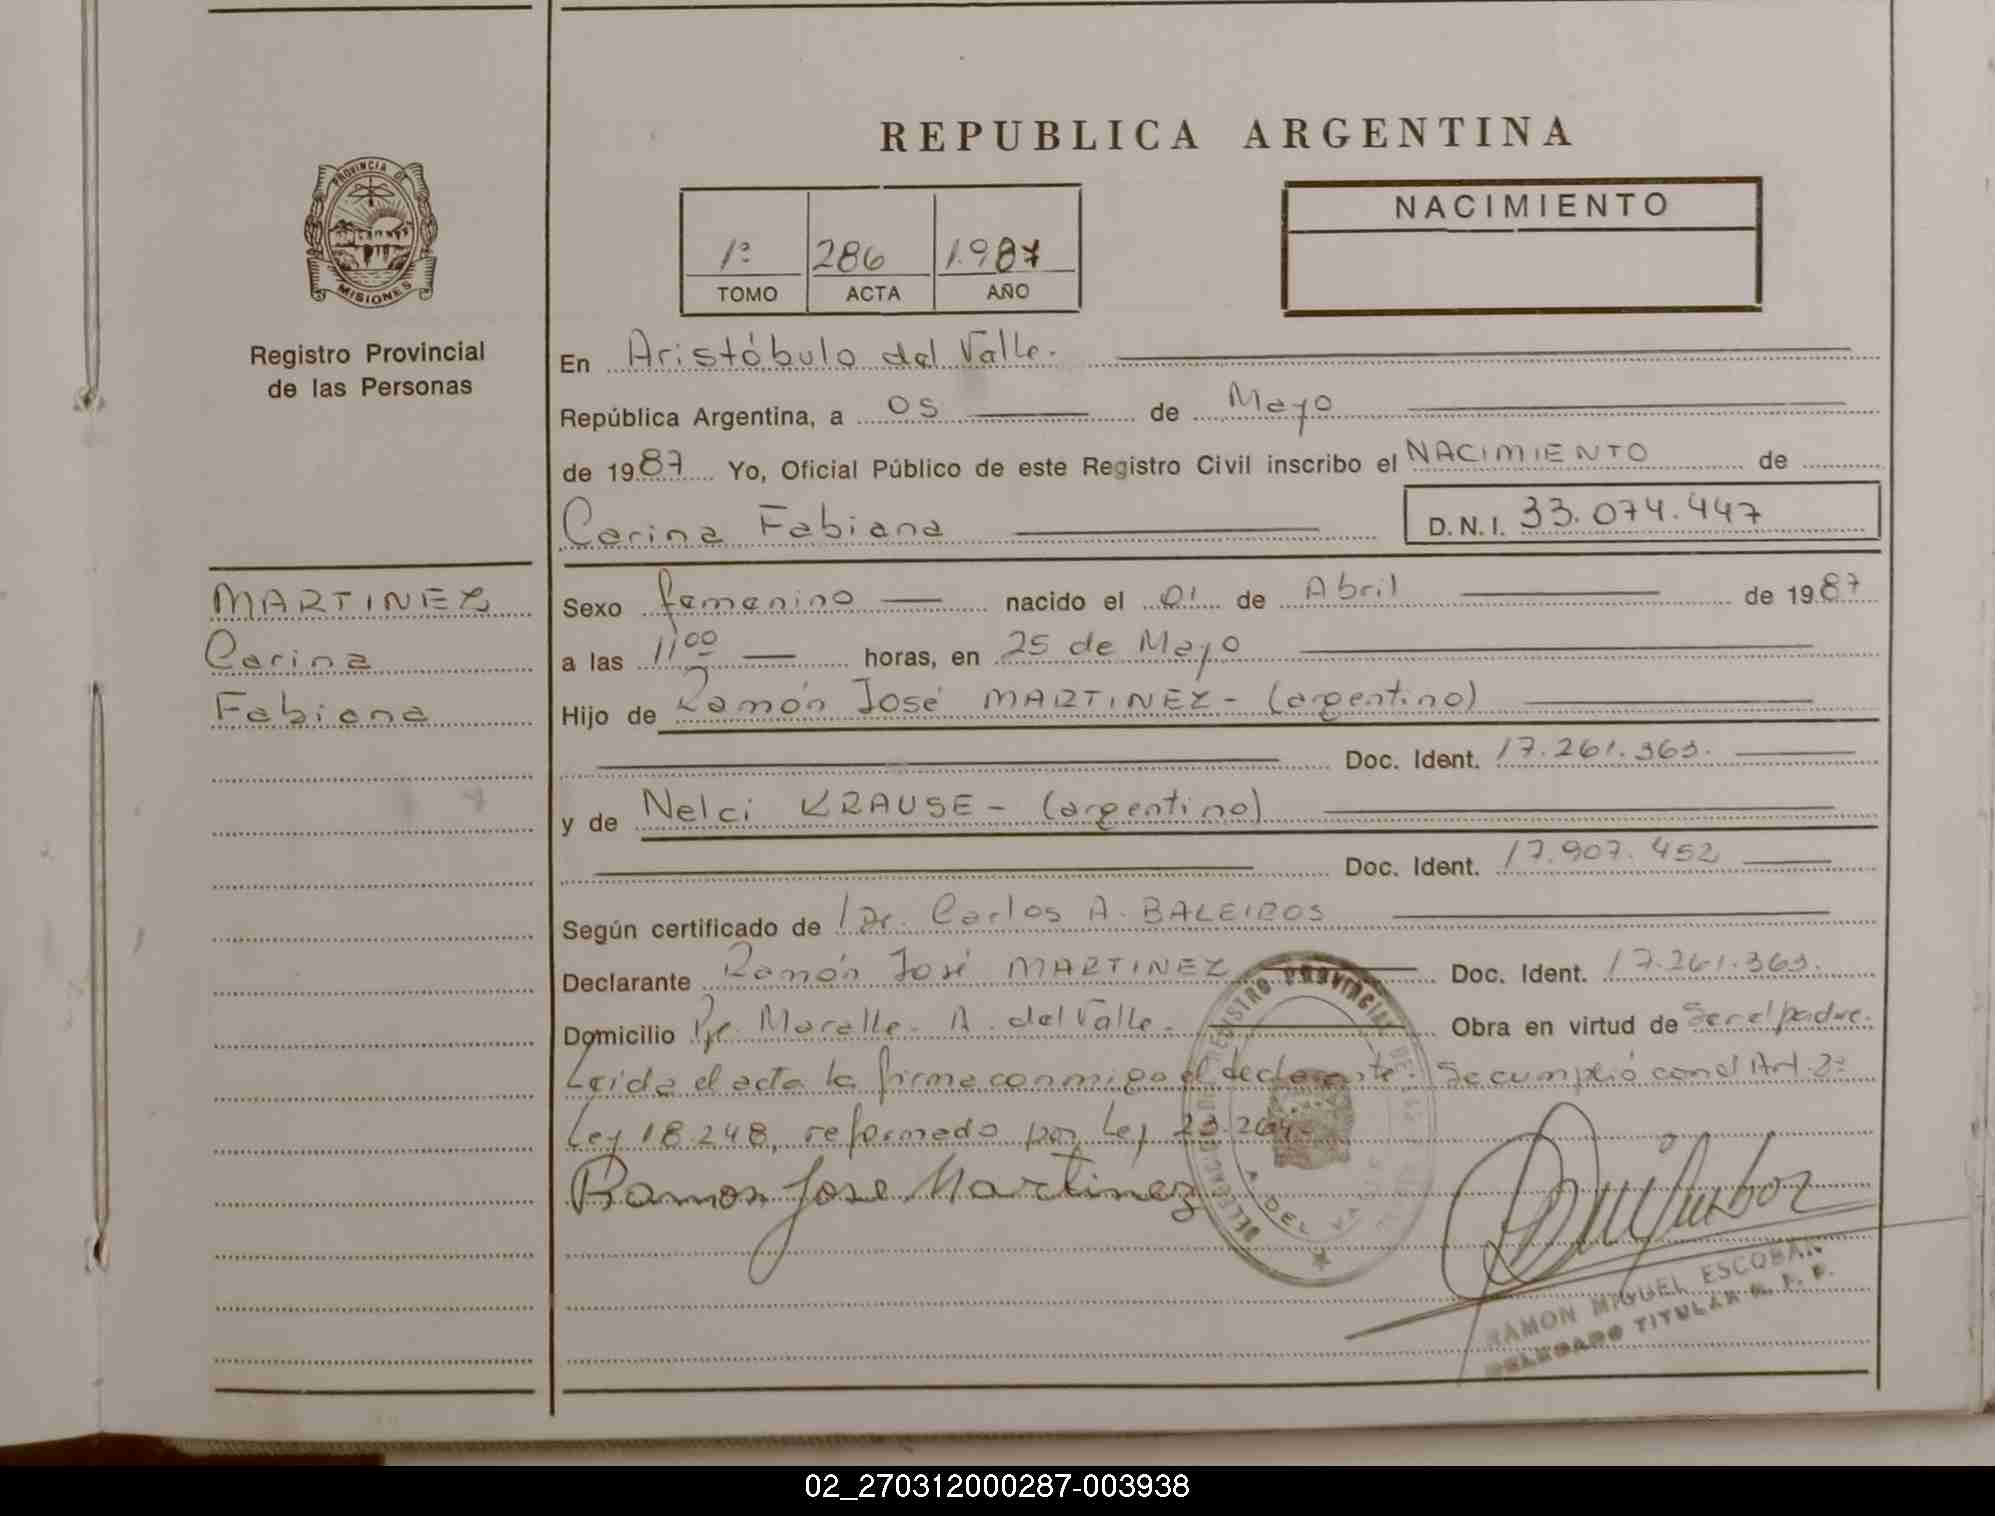 REPUBLICA ARGENTINA
PROVINCIA DE
MISIONES
Registro Provincial
de las Personas
1º 286 1.987
TOMO ACTA AÑO
NACIMIENTO
En Aristóbulo del Valle.
República Argentina, a 05 de Mayo
de 1987 Yo, Oficial Público de este Registro Civil inscribo el NACIMIENTO de
Carina Fabiana D.N.I. 33.074.447
MARTINEZ
Carina
Fabiana
Sexo femenino nacido el 01 de Abril de 1987
a las 11 00 horas, en 25 de Mayo
Hijo de Ramón José MARTINEZ - (argentino)
Doc. Ident. 17.261.363.
y de Nelci KRAUSE - (argentino)
Doc. Ident. 17.907.452
Según certificado de Dr. Carlos A. BALEIROS
Declarante Ramón José MARTINEZ Doc. Ident. 17.261.363.
Domicilio Pje. A. del Valle. Obra en virtud de Ser el padre.
Leida el acta la firma conmigo el declarante. Se cumplió con el Art. 2º
Ley 18.248, reformado por Ley 23.264.
Ramon Jose Martinez
DEL REGISTRO PROVINCIAL DE LAS
A. DEL VALLE
RAMON MIGUEL ESCOBAR
DELEGADO TITULAR R. P. P.
02_270312000287-003938